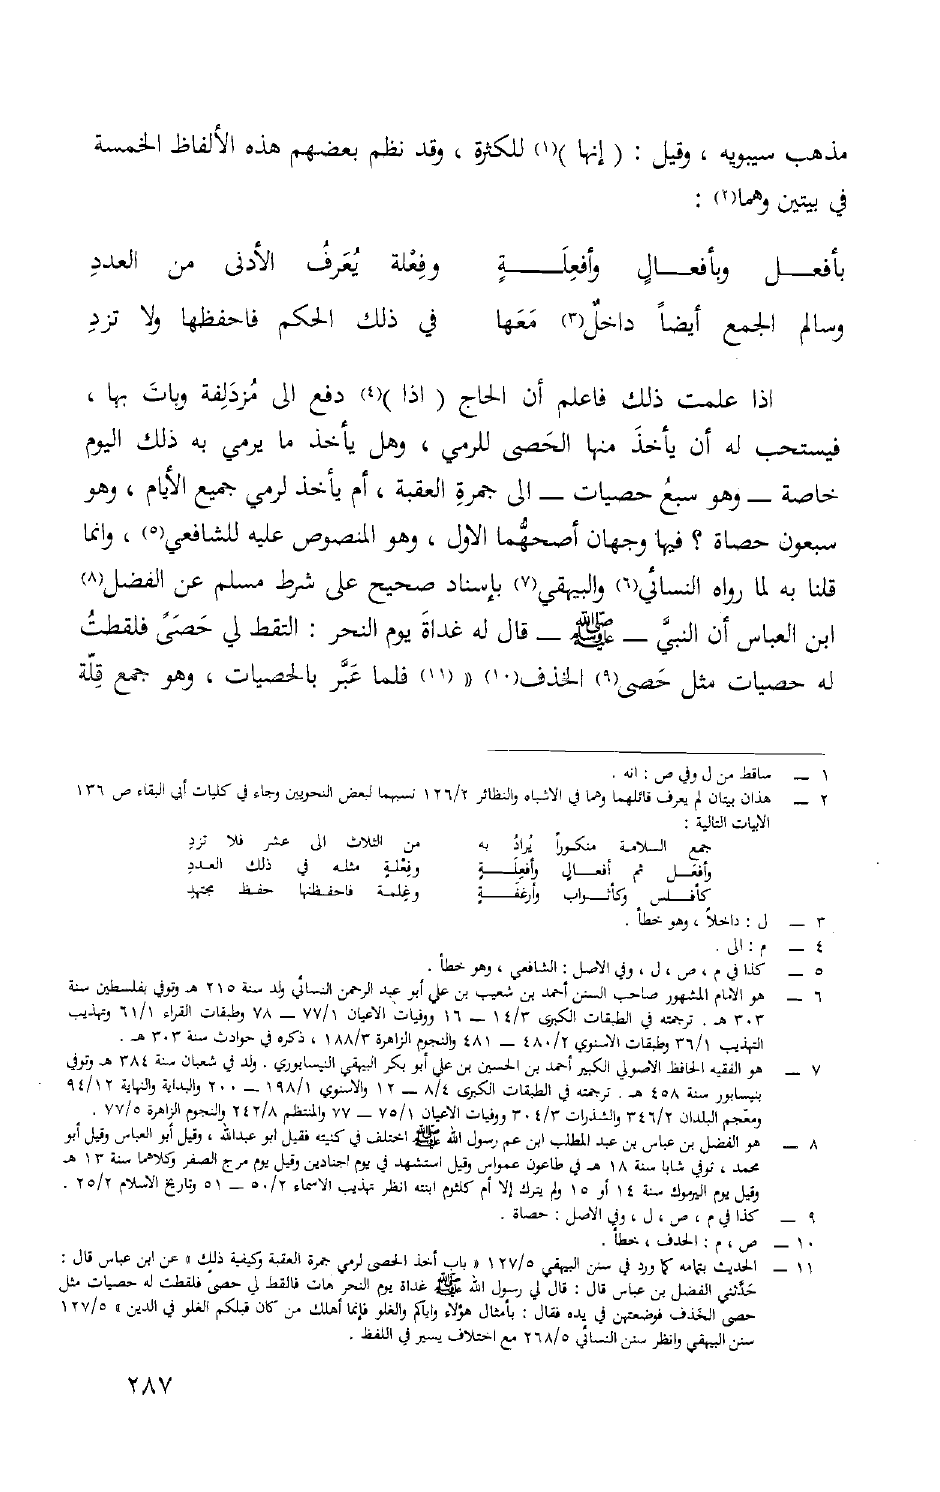 مذهب سيبويه ، وقيل : ( إنها )(١) للكثرة ، وقد نظم بعضهم هذه الألفاظ الخمسة
في بيتين وهما(٢) :
بأفعـــل وبأفعـــالٍ وأفعِلَـــــةٍ وفِعْلة يُعَرفُ الأدنى من العددِ
وسالم الجمع أيضاً داخلٌ(٣) مَعَها في ذلك الحكم فاحفظها ولا تزدِ
اذا علمت ذلك فاعلم أن الحاج ( اذا )(٤) دفع الى مُزدَلِفة وباتَ بها ،
فيستحب له أن يأخذَ منها الحَصى للرمي ، وهل يأخذ ما يرمي به ذلك اليوم
خاصة ــ وهو سبعُ حصيات ــ الى جمرةِ العقبة ، أم يأخذ لرمي جميع الأيام ، وهو
سبعون حصاة ؟ فيها وجهان أصحهُّما الاول ، وهو المنصوص عليه للشافعي(٥) ، وانما
قلنا به لما رواه النسائي(٦) والبيهقي(٧) بإسناد صحيح على شرط مسلم عن الفضل(٨)
ابن العباس أن النبيَّ ــ ﷺ ــ قال له غداةَ يوم النحر : التقط لي حَصىً فلقطتُ
له حصيات مثل حَصى(٩) الخذف(١٠) » (١١) فلما عَبَّر بالحصيات ، وهو جمع قِلّة
١ ــ ساقط من ل وفي ص : انه .
٢ ــ هذان بيتان لم يعرف قائلهما وهما في الاشباه والنظائر ١٢٦/٢ نسبهما لبعض النحويين وجاء في كليات أبي البقاء ص ١٣٦
الابيات التالية :
جمع السلامة منكوراً يُرادُ به من الثلاث الى عشر فلا تزدِ
وأفعَـــل ثم أفعـــالي وأفعِلَـــــةٍ وفِعْلةٍ مثله في ذلك العددِ
كأفـــلس وكأثـــواب وأرغفَـــةٍ وغِلمة فاحفظنها حفظ مجتهد
٣ ــ ل : داخلاً ، وهو خطأ .
٤ ــ م : الى .
٥ ــ كذا في م ، ص ، ل ، وفي الاصل : الشافعي ، وهو خطأ .
٦ ــ هو الامام المشهور صاحب السنن أحمد بن شعيب بن علي أبو عبد الرحمن النسائي ولد سنة ٢١٥ هـ وتوفي بفلسطين سنة
٣٠٣ هـ . ترجمته في الطبقات الكبرى ١٤/٣ ــ ١٦ ووفيات الاعيان ٧٧/١ ــ ٧٨ وطبقات القراء ٦١/١ وتهذيب
التهذيب ٣٦/١ وطبقات الاسنوي ٤٨٠/٢ ــ ٤٨١ والنجوم الزاهرة ١٨٨/٣ ، ذكره في حوادث سنة ٣٠٣ هـ .
٧ ــ هو الفقيه الحافظ الاصولي الكبير أحمد بن الحسين بن علي أبو بكر البيهقي النيسابوري . ولد في شعبان سنة ٣٨٤ هـ وتوفي
بنيسابور سنة ٤٥٨ هـ . ترجمته في الطبقات الكبرى ٨/٤ ــ ١٢ والاسنوي ١٩٨/١ ــ ٢٠٠ والبداية والنهاية ٩٤/١٢
ومعجم البلدان ٣٤٦/٢ والشذرات ٣٠٤/٣ ووفيات الاعيان ٧٥/١ ــ ٧٧ والمنتظم ٢٤٢/٨ والنجوم الزاهرة ٧٧/٥ .
٨ ــ هو الفضل بن عباس بن عبد المطلب ابن عم رسول الله ﷺ اختلف في كنيته فقيل ابو عبدالله ، وقيل أبو العباس وقيل أبو
محمد ، توفي شابا سنة ١٨ هـ في طاعون عمواس وقيل استشهد في يوم اجنادين وقيل يوم مرج الصفر وكلاهما سنة ١٣ هـ
وقيل يوم اليرموك سنة ١٤ أو ١٥ ولم يترك إلا أم كلثوم ابنته انظر تهذيب الاسماء ٥٠/٢ ــ ٥١ وتاريخ الاسلام ٢٥/٢ .
٩ ــ كذا في م ، ص ، ل ، وفي الاصل : حصاة .
١٠ ــ ص ، م : الحدف ، خطأ .
١١ ــ الحديث بتمامه كما ورد في سنن البيهقي ١٢٧/٥ « باب أخذ الحصى لرمي جمرة العقبة وكيفية ذلك » عن ابن عباس قال :
حَدَّثني الفضل بن عباس قال : قال لي رسول الله ﷺ غداة يوم النحر هات فالقط لي حصى فلقطت له حصيات مثل
حصى الخَذف فوضعتهن في يده فقال : بأمثال هؤلاء واياكم والغلو فإنما أهلك من كان قبلكم الغلو في الدين » ١٢٧/٥
سنن البيهقي وانظر سنن النسائي ٢٦٨/٥ مع اختلاف يسير في اللفظ .
٢٨٧